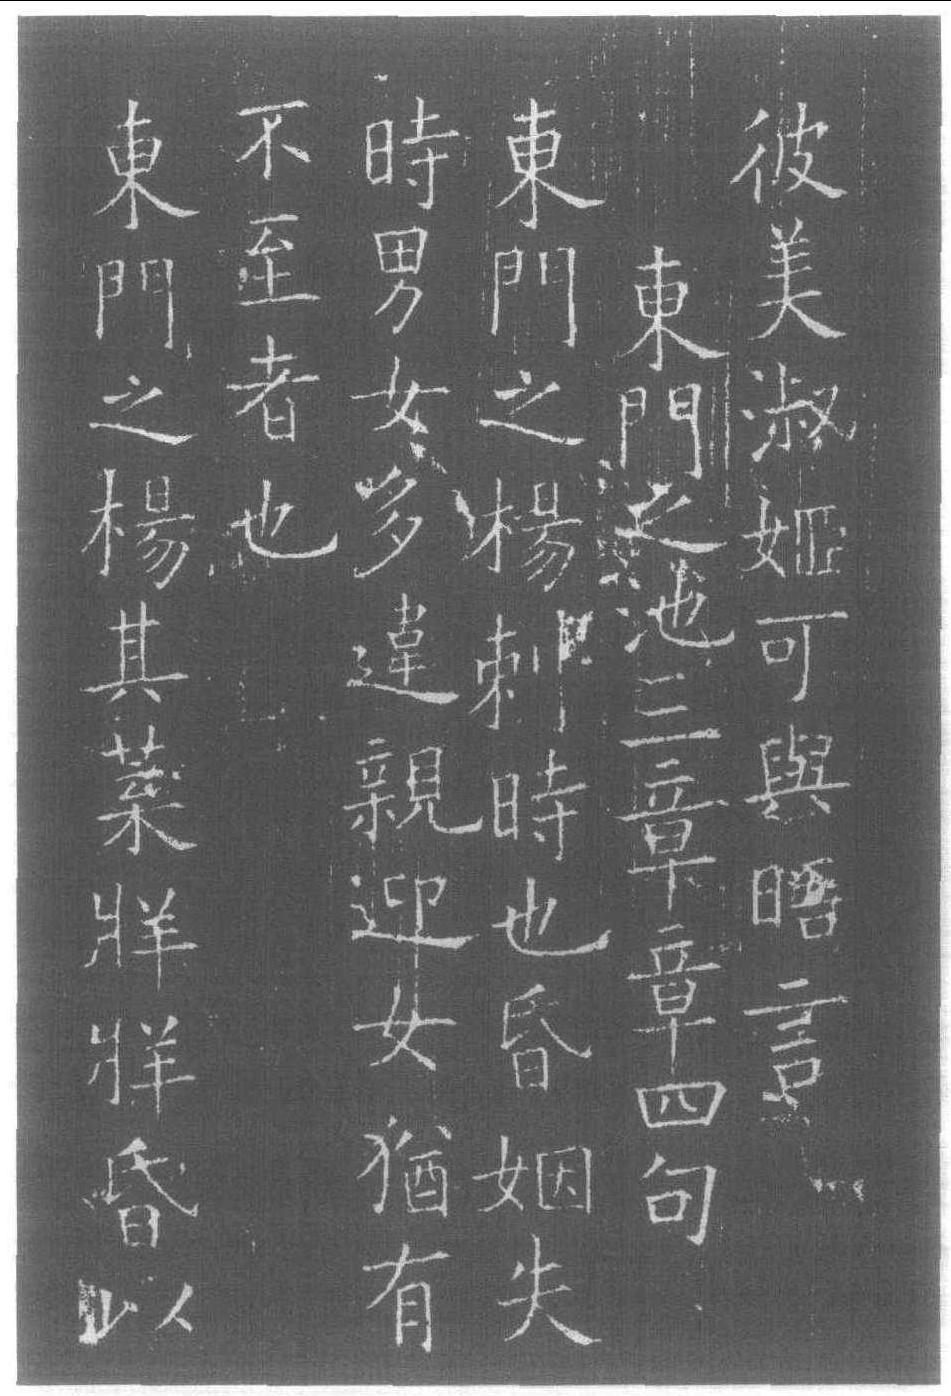 彼美淑姬可與晤言
東門之池三章章四句
東門之楊刺時也昏姻失
時男女多違親迎女猶有
不至者也
東門之楊其葉牂牂昏以